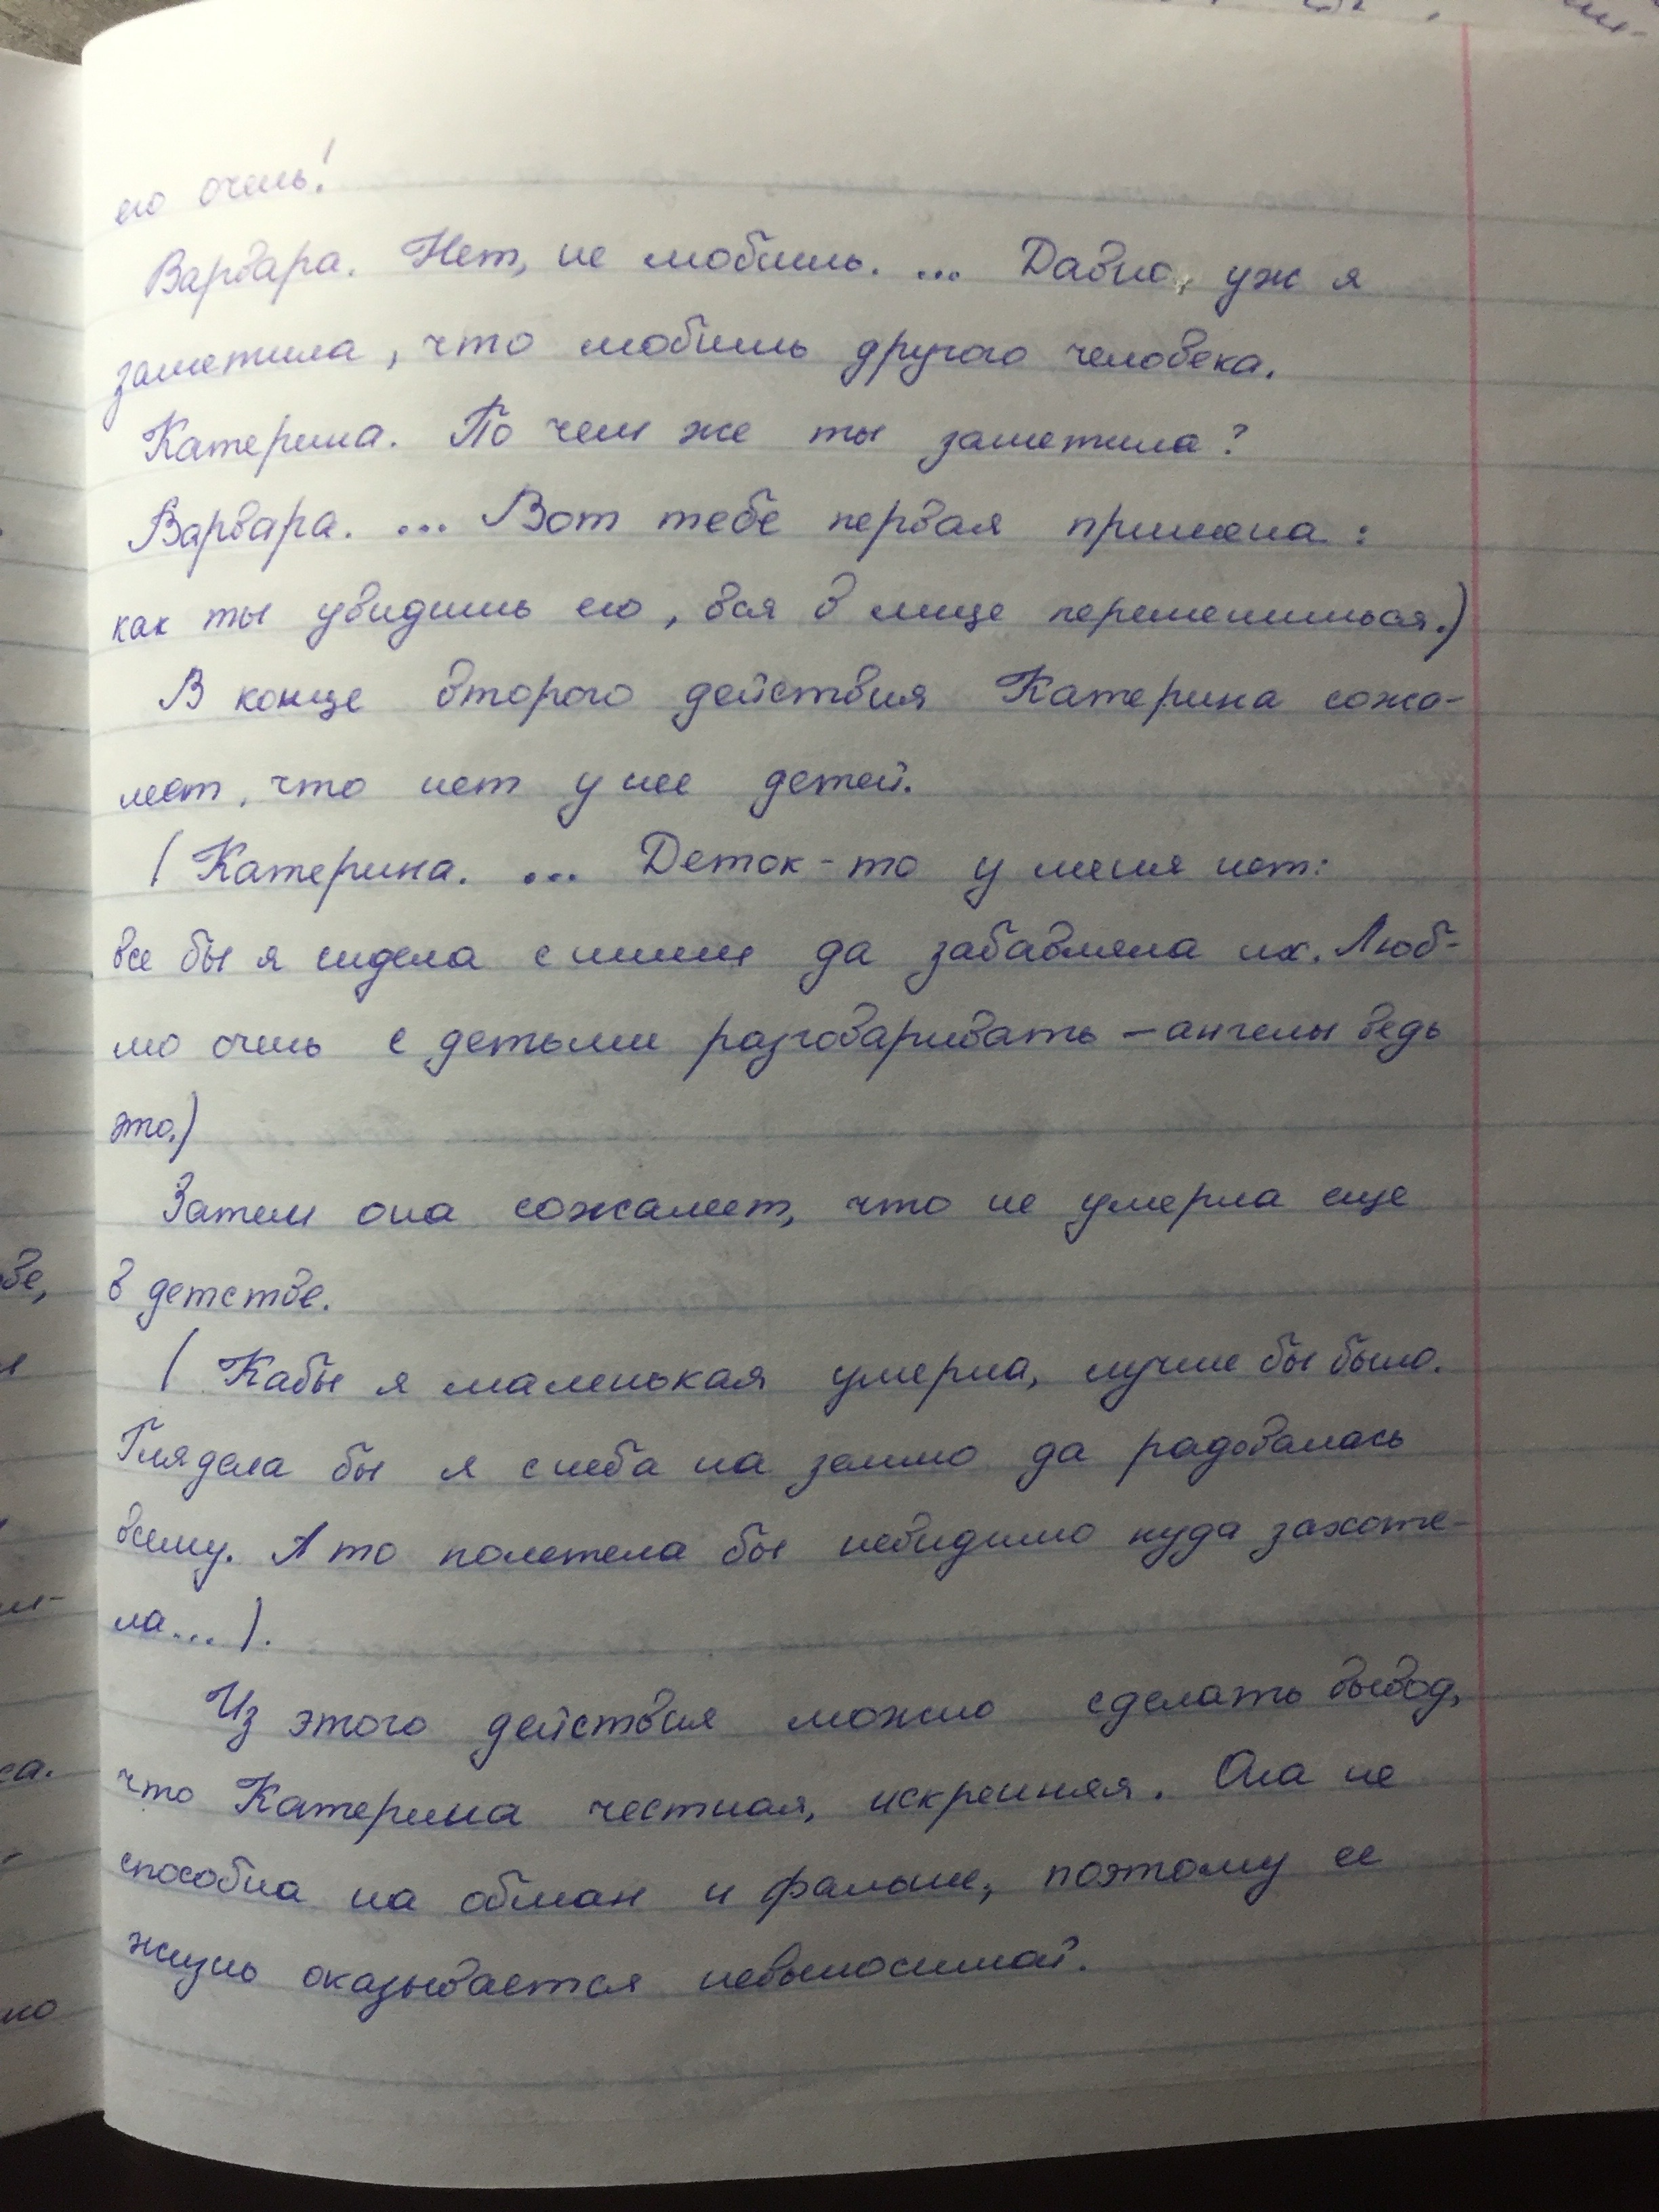 его очень!
Варвара. Нет, не любишь. ... Давно уж я
заметила, что любишь другого человека.
Катерина. По чем же ты заметила?
Варвара. ... Вот тебе первая примена:
как ты увидишь его, вся в лице переменишься.)
В конце второго действия Катерина сожа-
леет, что нет у нее детей.
(Катерина. ... Деток-то у меня нет:
все бы я сидела с ними да забавляла их. Люб-
лю очень с детьми разговаривать — ангелы ведь
это.)
Затем она сожалеет, что не умерла еще
в детстве.
(Кабы я маленькая умерла, лучше бы было.
Глядела бы я с неба на землю да радовалась
всему. А то полетела бы невидимо куда захоте-
ла...).
Из этого действия можно сделать вывод,
что Катерина честная, искренняя. Она не
способна на обман и фальшь, поэтому ее
жизнь оказывается невыносимой.
ве,
са.
но